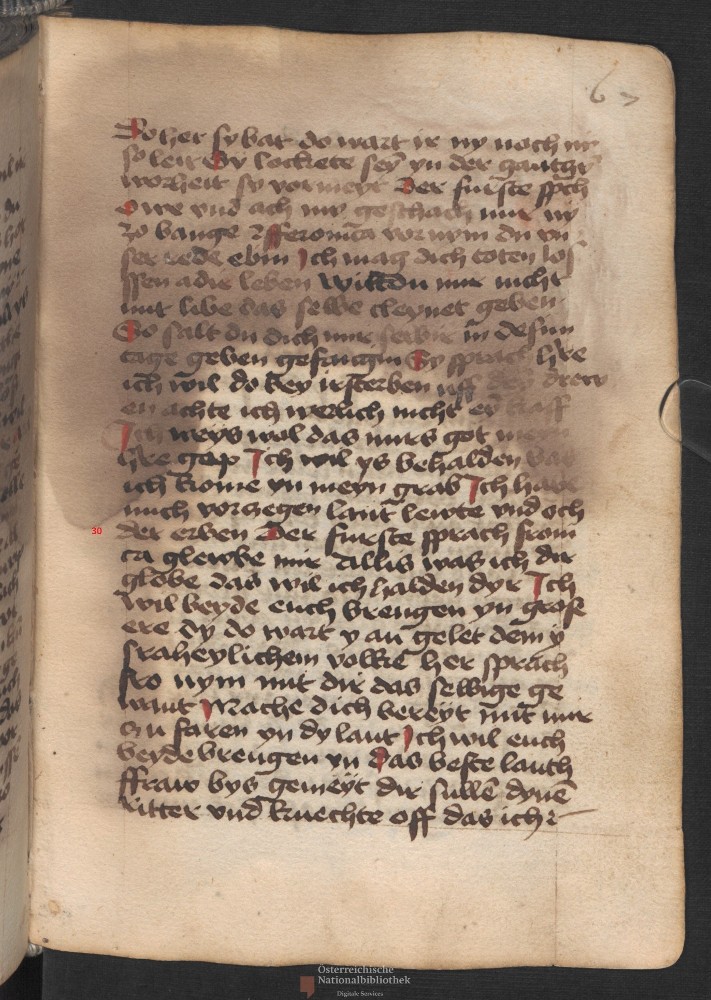 67
Do her sy bat do wart ir ny noch ny
so leit Sy lockete sey yn der gantczn
worheit sy vormeyt Der furste spch
O we vnd ach my geschach mir ny
zo bange fferonica vornym du vn
ser rede ebin Ich mag dich toten los
ssen adir leben Wiltdu mir nicht
mit libe das selbe cleynet geben
So salt du dich mir
tage geben gefangin Sy sprach here
ich wil do bey irsterben uff drew
en achte ich werlich nicht
Ich weys wol das mirs got
here gap Ich wil ys behalden
ich kome yn meyn grab Ich habe
mich vorczegen laut lewte vnd och
30 der erben Der furste sprach froni
ca glewbe mir allis was ich dir
globe das wil ich halden dyr Ich
wil beyde euch brengen yn grose
ere dy do wart y an gelet dem y
sraheylichem volke her sprach
fro nym mit dir das selbige ge
want Mache dich bereyt mit mir
czu faren yn dy laut Ich wil euch
beyde brengen yn das beste lauth
ffraw bys gemeyt dir sulle dyne
ritter vnd knechte off das ich
Österreichische
Nationalbibliothek
Digitale Services